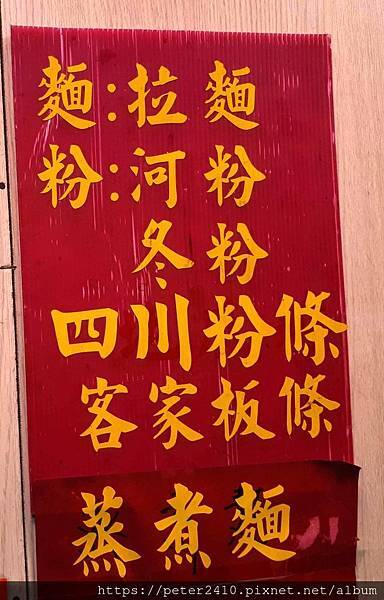 麵:拉麵
粉:河粉
冬粉
四川粉條
客家板條
蒸煮麵
https://peter2410.pixnet.net/album